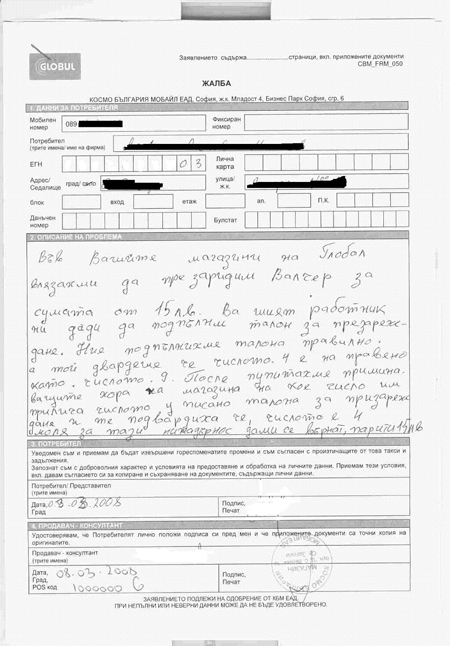 GLOBUL
Заявлението съдържа..................страници, вкл. приложените документи
CBM_FRM_050
ЖАЛБА
КОСМО БЪЛГАРИЯ МОБАЙЛ ЕАД, София, ж.к. Младост 4, Бизнес Парк София, сгр. 6
1. ДАННИ ЗА ПОТРЕБИТЕЛЯ
Мобилен номер 089
Фиксиран номер
Потребител (трите имена/ име на фирма)
ЕГН 03
Лична карта
Адрес/ Седалище град/ село
улица/ ж.к.
блок вход етаж ап. П.К.
Данъчен номер
Булстат
2. ОПИСАНИЕ НА ПРОБЛЕМА
Във Вашите магазини на Глобал
влязахми да презаридим Валчер за
сумата от 15лв. Ва шият работник
ни дади да подпълним талон за презареж-
дане. Ние подпължихме талона правилно.
а той двардеше че числото. 4 е на правено
като. числото. 9. После путитахме примина.
ващите хора на магазина на кое число им
прилича числото у писано талона за призареж
дане и те подвардиха че, числото е 4
моля за тази дами се върнат, парити 15лв
3. ПОТРЕБИТЕЛ
Уведомен съм и приемам да бъдат извършени гореспоменатите промени и съм съгласен с произтичащите от това такси и
задължения.
Запознат съм с доброволния характер и условията на предоставяне и обработка на личните данни. Приемам тези условия,
вкл. давам съгласието си за копиране и съхраняване на документите, съдържащи лични данни.
Потребител/ Представител
(трите имена)
Дата, 08.03.2008
Град
Подпис,
Печат
4. ПРОДАВАЧ - КОНСУЛТАНТ
Удостоверявам, че Потребителят лично положи подписа си пред мен и че приложените документи са точни копия на
оригиналите.
Продавач - консултант
(трите имена)
Дата, 08.03.2008
Град
POS код 1000000
Подпис,
Печат
МАГАЗИН
ЗАЯВЛЕНИЕТО ПОДЛЕЖИ НА ОДОБРЕНИЕ ОТ КБМ ЕАД.
ПРИ НЕПЪЛНИ ИЛИ НЕВЕРНИ ДАННИ МОЖЕ ДА НЕ БЪДЕ УДОВЛЕТВОРЕНО.